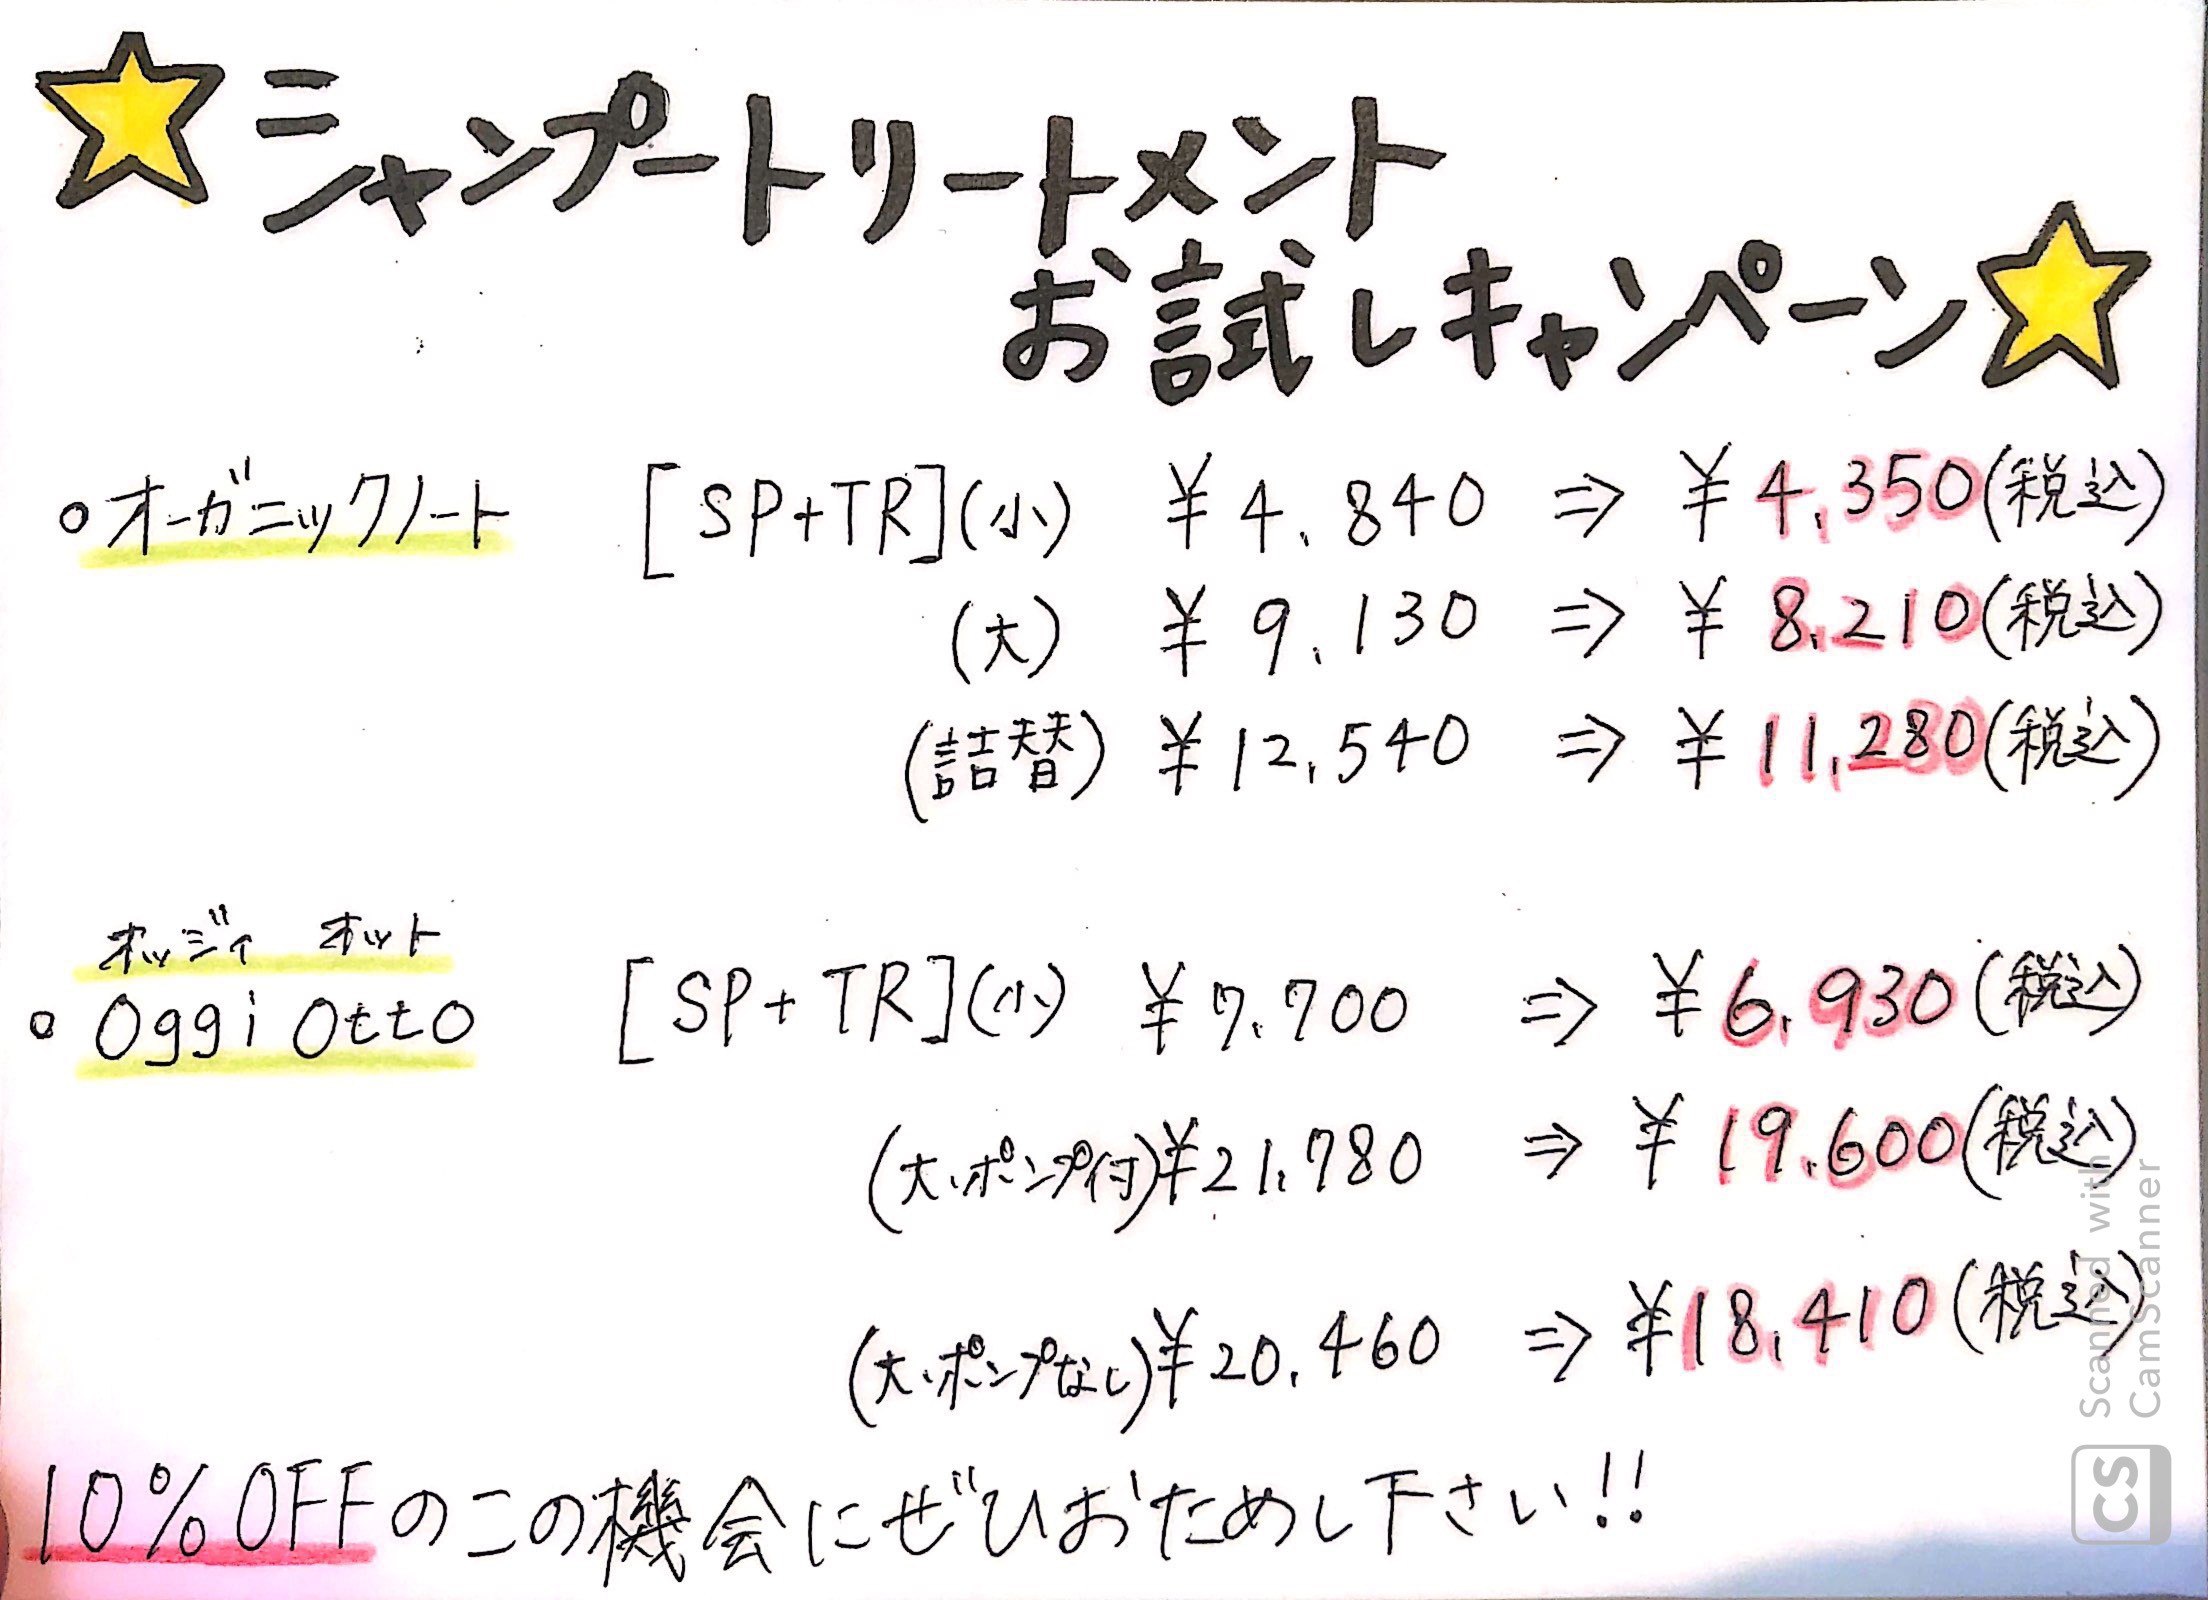 シャンプートリートメント
お試しキャンペーン
○オーガニックノート [SP+TR](小) ¥4,840 ⇒ ¥4,350(税込)
(大) ¥9,130 ⇒ ¥8,210(税込)
(詰替) ¥12,540 ⇒ ¥11,280(税込)
オッジィ オット
○Oggi Otto [SP+TR](小) ¥7,700 ⇒ ¥6,930(税込)
(大、ポンプ付)¥21,780 ⇒ ¥19,600(税込)
(大、ポンプなし)¥20,460 ⇒ ¥18,410(税込)
10%OFFのこの機会にぜひおためし下さい!!
CS Scanned with
CamScanner